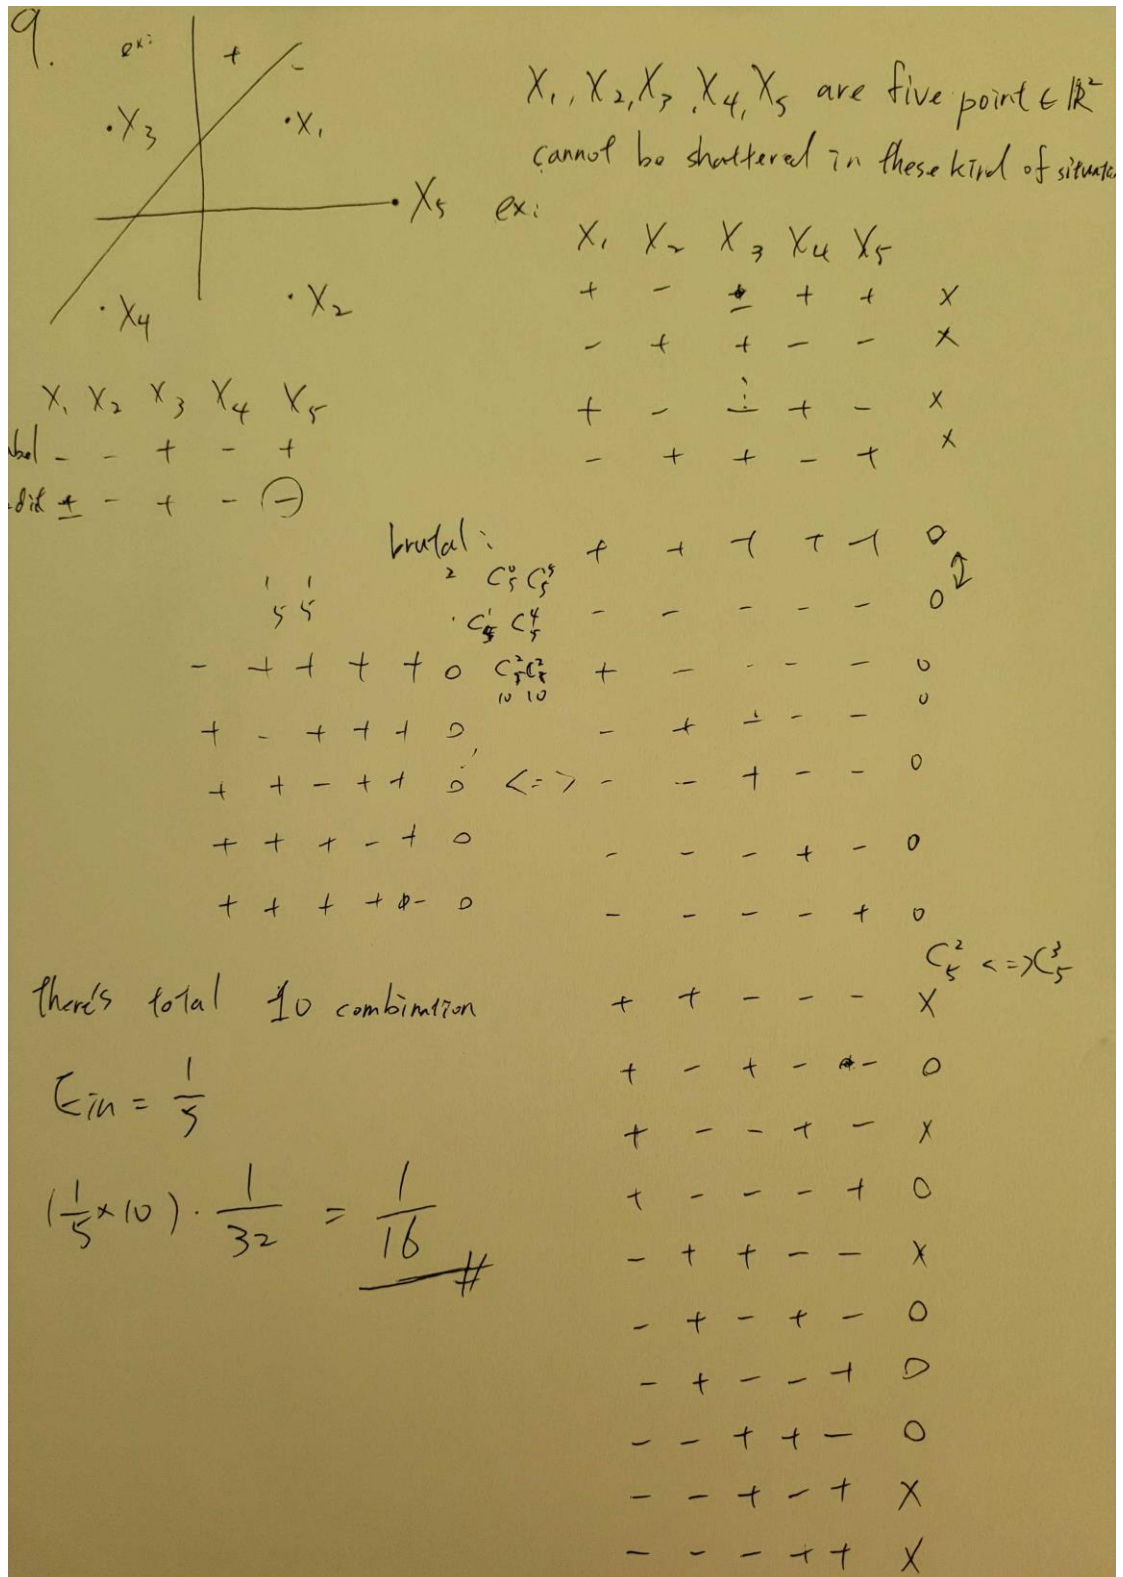 9.
ex:
+ -
·X₃ ·X₁
·X₅
·X₄ ·X₂
X₁ X₂ X₃ X₄ X₅
bel - - + - +
dit + - + - -
X₁, X₂, X₃, X₄, X₅ are five point ∈ ℝ²
cannot be shattered in these kind of situat
ex:
X₁ X₂ X₃ X₄ X₅
+ - + + + x
- + + - - x
+ - - + - x
- + + - + x
brutal:
2 C₅⁰ C₅⁵
C₅¹ C₅⁴
C₅² C₅²
10 10
1 1
5 5
+ + + + + 0
- - - - - 0
- + + + + 0
+ - + + + 0
+ + - + + 0 <=>
+ + + - + 0
+ + + + - 0
+ - - - - 0
- + - - - 0
- - + - - 0
- - - + - 0
- - - - + 0
C₅² <=> C₅³
+ + - - - x
+ - + - - 0
+ - - + - x
+ - - - + 0
- + + - - x
- + - + - 0
- + - - + 0
- - + + - 0
- - + - + x
- - - + + x
there's total 10 combintion
Ein = 1/5
(1/5 × 10) · 1/32 = 1/16 #